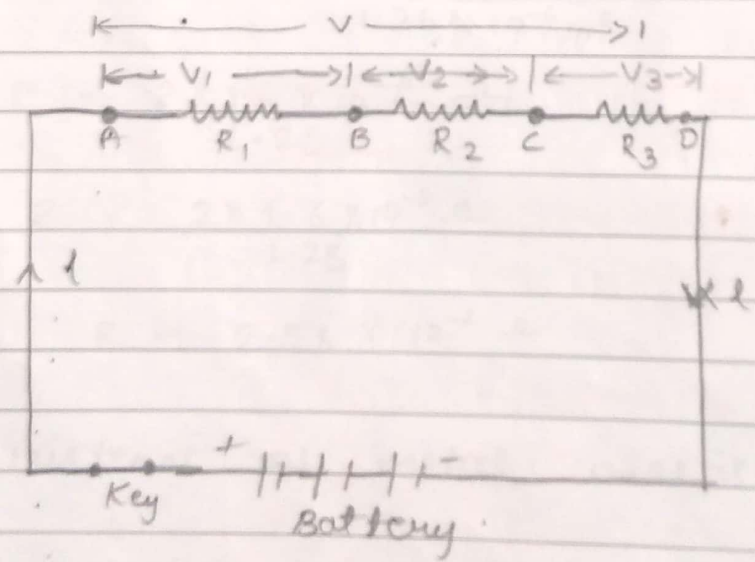 V
V1 V2 V3
A R1 B R2 C R3 D
I I
+ -
Key
Battery